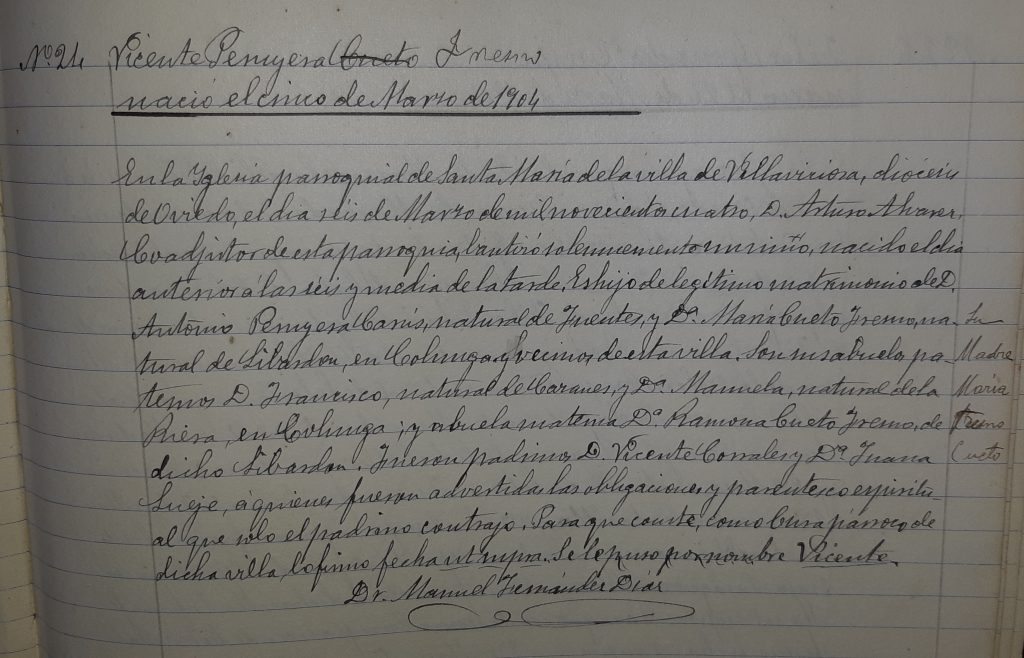 Nº 24 Vicente Peruyera Cueto Fresno
nació el cinco de Marzo de 1904
En la Iglesia parroquial de Santa María de la villa de Villaviciosa, diócesis
de Oviedo, el día seis de Marzo de mil novecientos cuatro, D. Arturo Alvarez,
Coadjutor de esta parroquia, bautizó solemnemente un niño, nacido el día
anterior á las seis y media de la tarde. Es hijo de legítimo matrimonio de D.
Antonio Peruyera Carús, natural de Fuentes, y Dª María Cueto Fresno, na-
tural de Libardon, en Colunga y vecinos de esta villa. Son sus abuelos pa-
ternos D. Francisco, natural de Cazanes, y Dª Manuela, natural de la
Riera, en Colunga; y abuela materna Dª Ramona Cueto Fresno, de
dicho Libardon. Fueron padrinos D. Vicente Corrales y Dª Juana
Lueje, á quienes fueron advertidas las obligaciones y parentesco espiritu-
al que solo el padrino contrajo. Para que conste, como Cura párroco de
dicha villa, lo firmo fecha ut supra. Se le puso por nombre Vicente.
Dr. Manuel Fernández Díaz
Su
Madre
María
Fresno
Cueto